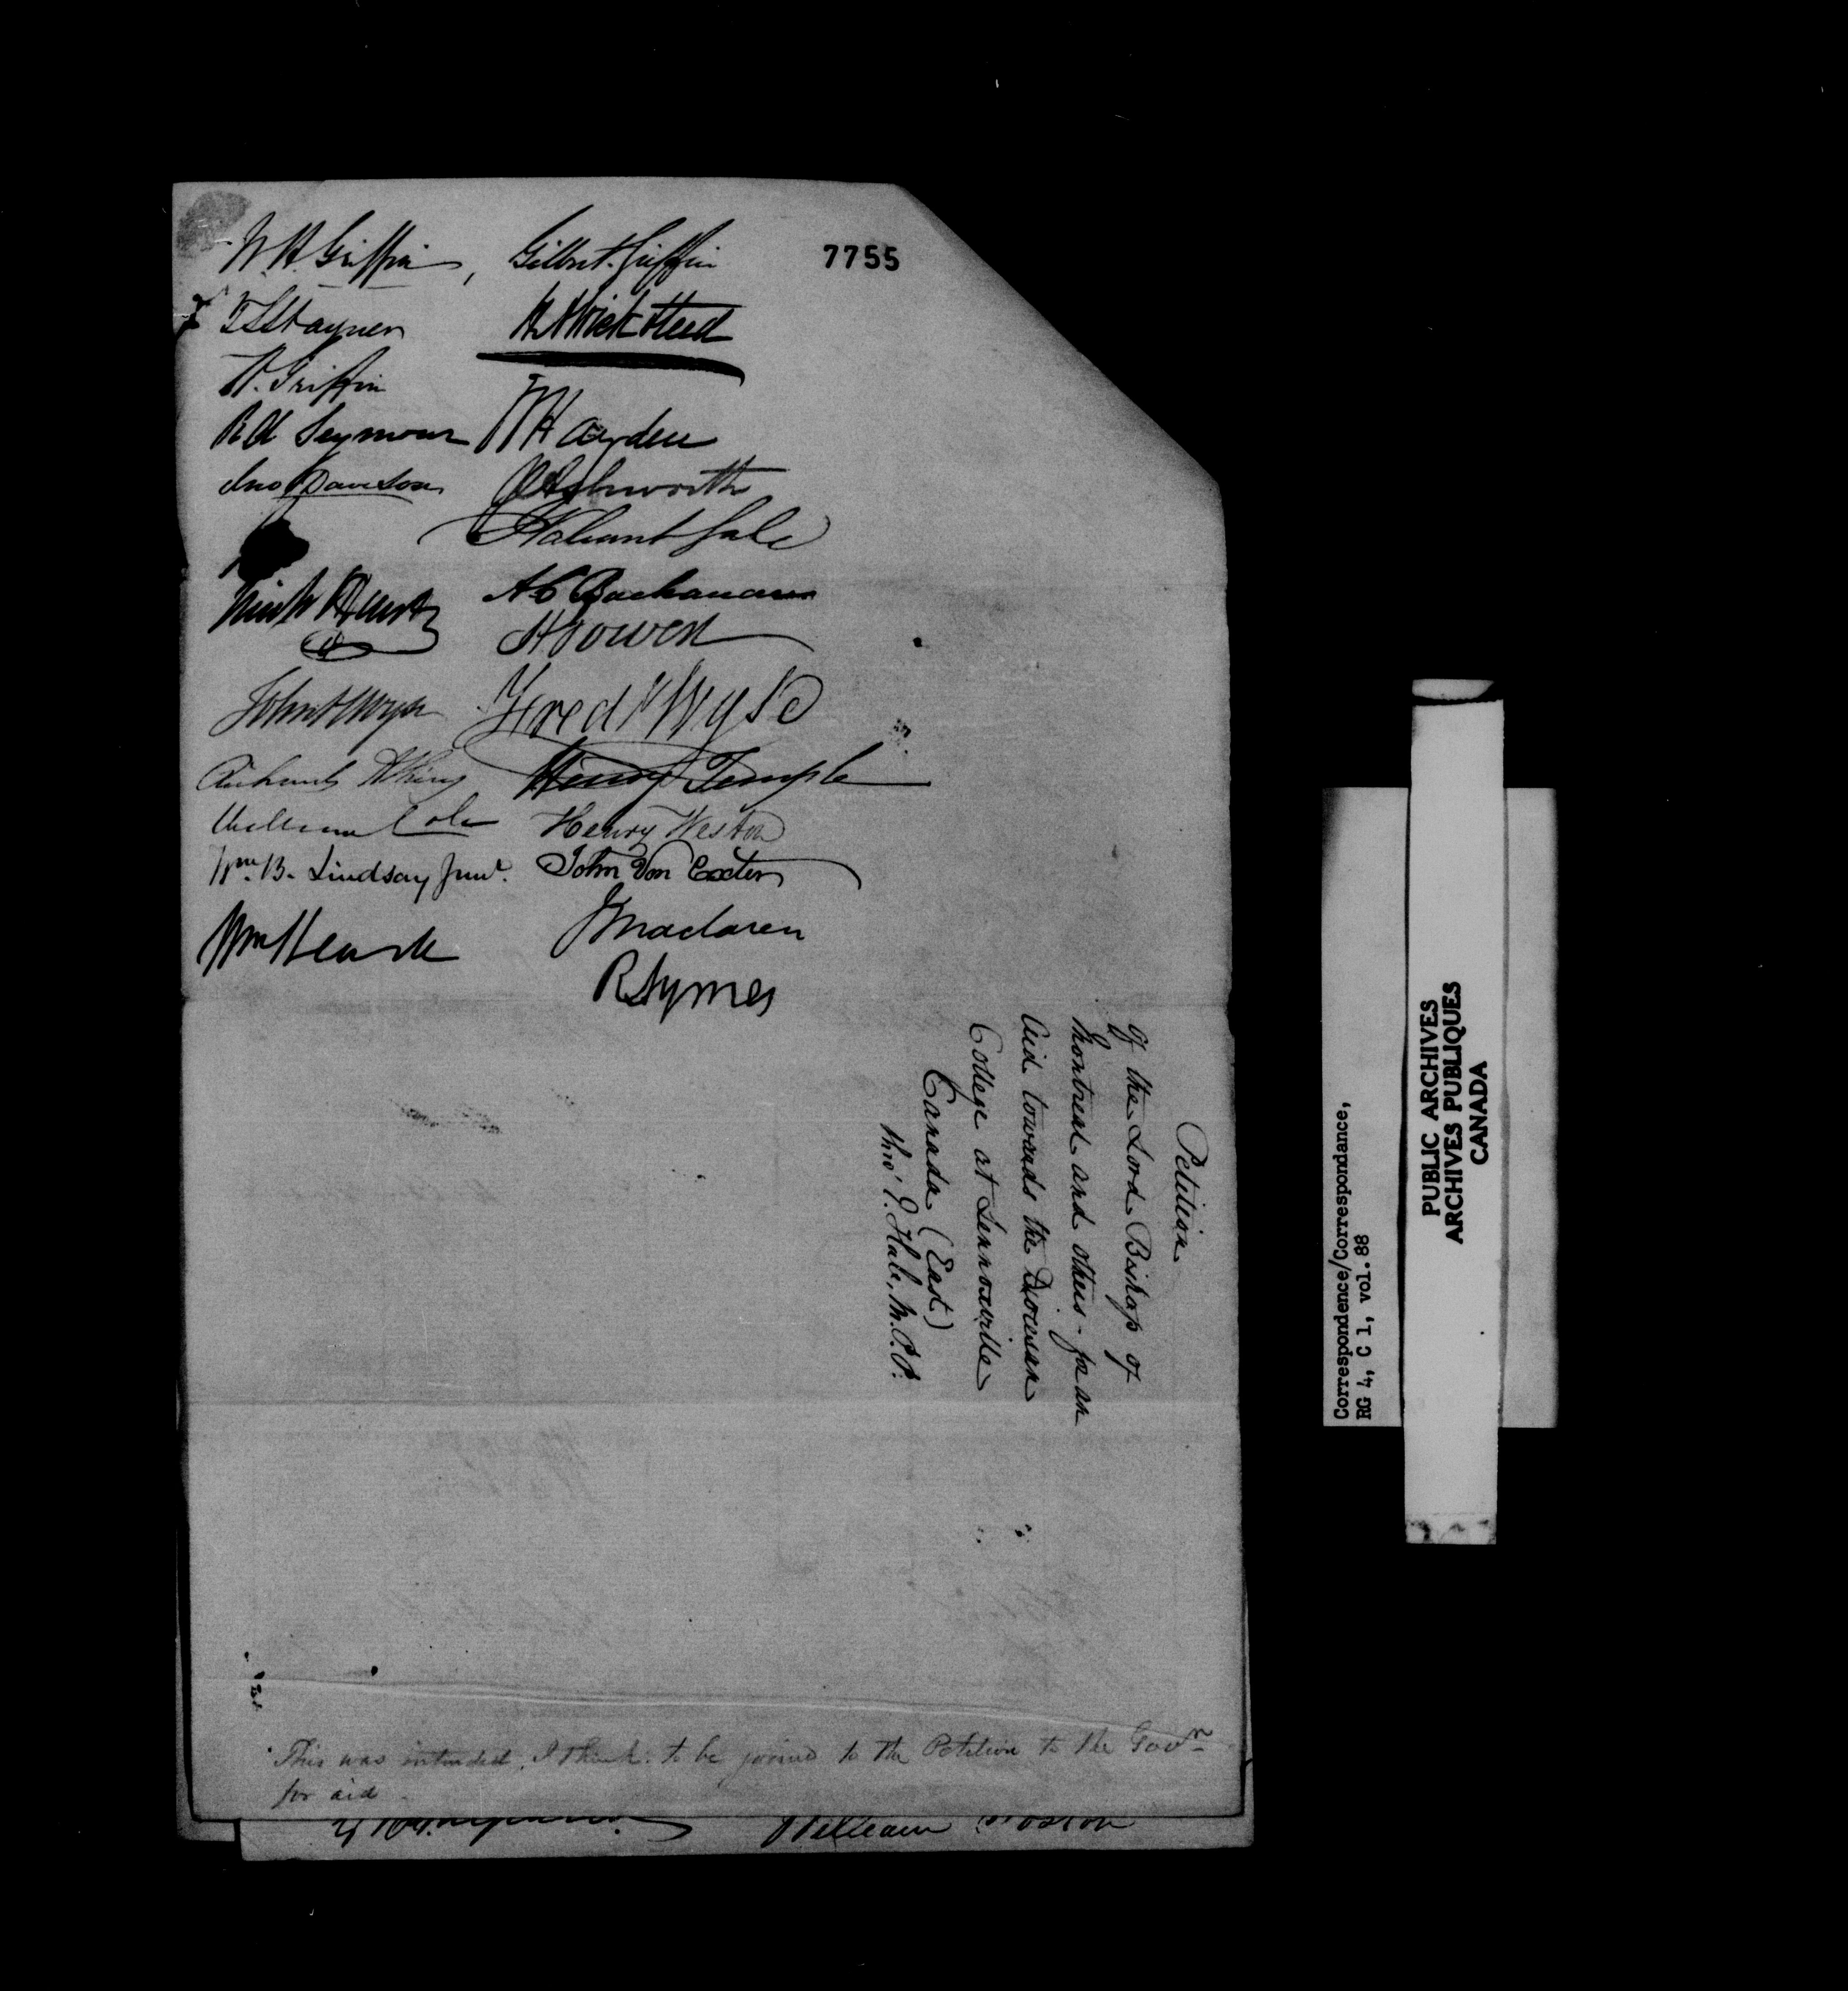 7755
W. H. Griffin, Gilbert Griffin
T A Stayner
W. Griffin
Seymour
Jno Davidson
T Hayden
J Ashworth
A C Buchanan
Fred Wyse
Richard Atkins
Henry Temple
William Cole
Henry Weston
Wm. B. Lindsay Junr.
John Von Exter
J Maclaren
R Symes
Petition
of the Lord Bishop of
Montreal and others - for an
Aid towards the Diocesan
College at Lennoxville
Canada (East)
thro' J. Hale, M.P.P.
This was intended, I think, to be joined to the Petition to the Govr
for aid
William Boston
Correspondence/Correspondance,
RG 4, C 1, vol. 88
PUBLIC ARCHIVES
ARCHIVES PUBLIQUES
CANADA